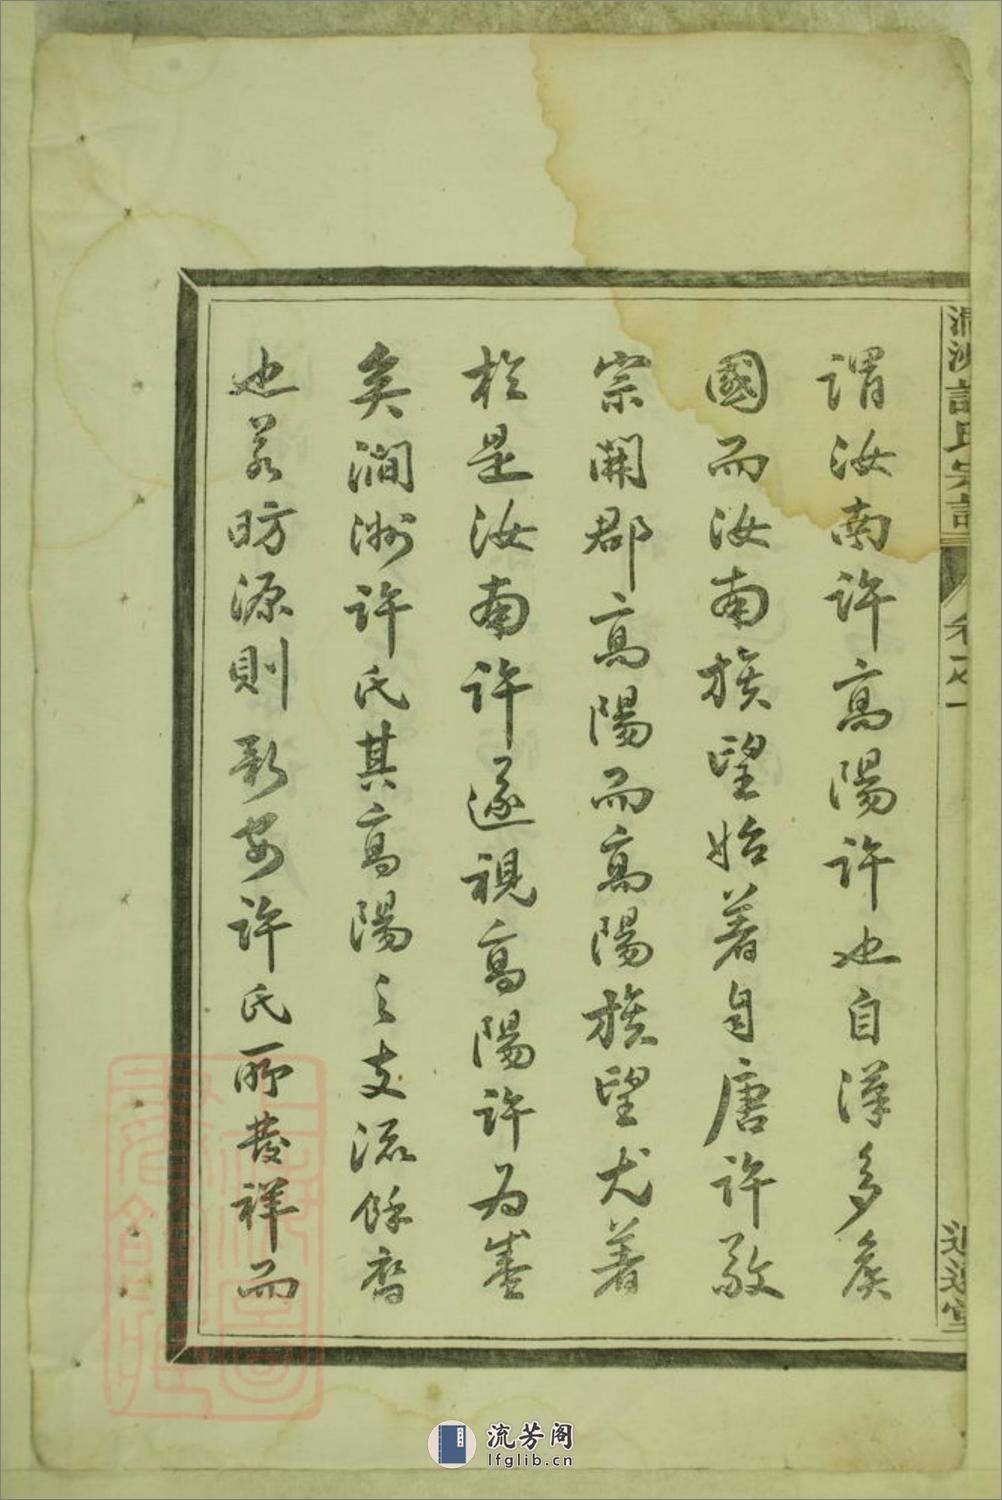 洲許氏宗譜
卷之一
謂汝南許高陽許也自漢多矦
國而汝南族望始著自唐許敬
宗開郡高陽而高陽族望尤著
於是汝南許遂視高陽許為盛
矣澗洲許氏其高陽之支流餘裔
也若昉源則新安許氏所發祥而
流芳阁
lfglib.cn